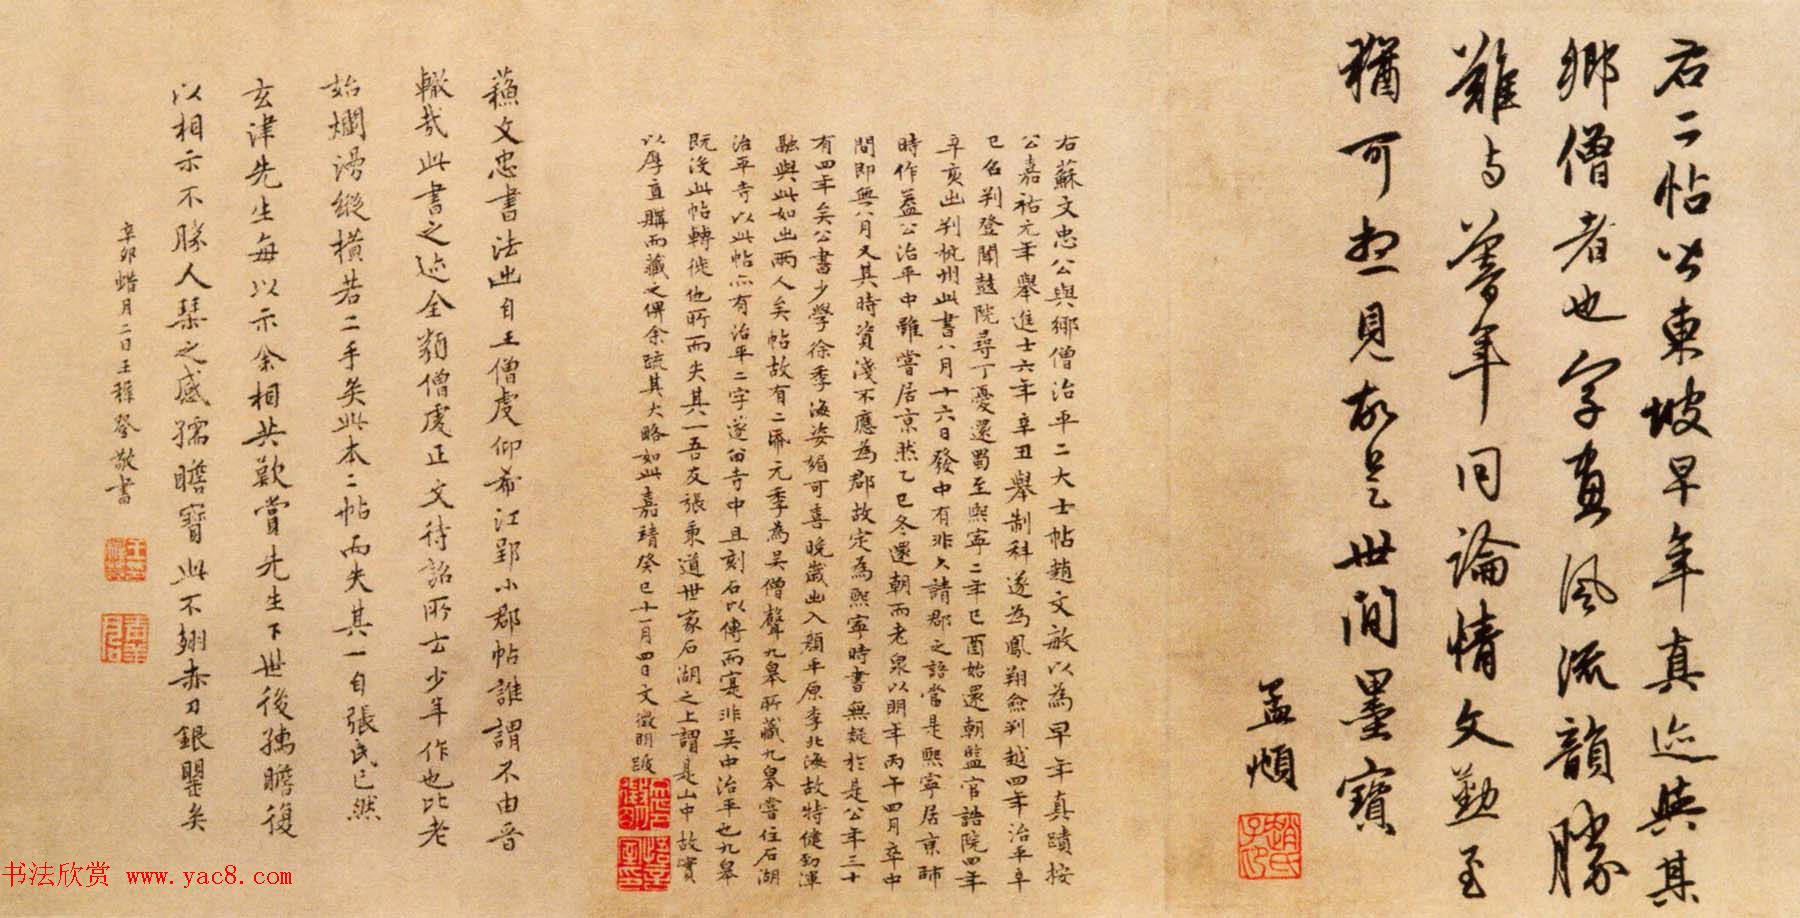 右二帖皆東坡早年真迹與其
鄉僧者也字畫風流韻勝
難與暮年同論情文勤至
猶可想見故是世間墨寶
孟頫
右蘇文忠公與鄉僧治平二大士帖趙文敏以為早年真蹟按
公嘉祐元年舉進士六年辛丑舉制科遂為鳳翔僉判越四年治平
已召判登聞鼓院尋丁憂還蜀至熙寧二年己酉始還朝監官誥院四年
辛亥出判杭州此書八月十六日發中有非久請郡之語當是熙寧居京師
時作蓋公治平中雖嘗居京然乙巳冬還朝而老泉以明年丙午四月卒中
間即無八月又其時資淺不應為郡故定為熙寧時書無疑於是公年三十
有四年矣公書少學徐季海姿媚可喜晚歲出入顏平原李北海故特健勁渾
融與此如出兩人矣帖故有二帋元季為吳僧聲九皋所藏九皋嘗住石湖
治平寺以此帖亦有治平二字遂留寺中且刻石以傳而寔非吳中治平也九皋
既沒此帖轉徙他所而失其一吾友張秉道世家石湖之上謂是山中故實
以厚直購而藏之俾余疏其大略如此嘉靖癸巳十一月四日文徵明跋
蘇文忠書法出自王僧虔仰希江郢小郡帖誰謂不由晉
轍哉此書之迹全類僧虔正文待詔所云少年作也比老
始爛漫縱橫若二手矣此本二帖而失其一自張氏已然
玄津先生每以示余相共歎賞先生下世後孺瞻復
以相示不勝人琴之感孺瞻寶此不翅赤刀銀瓮矣
辛卯蜡月二日王穉登敬書
书法欣赏 www.yac8.com